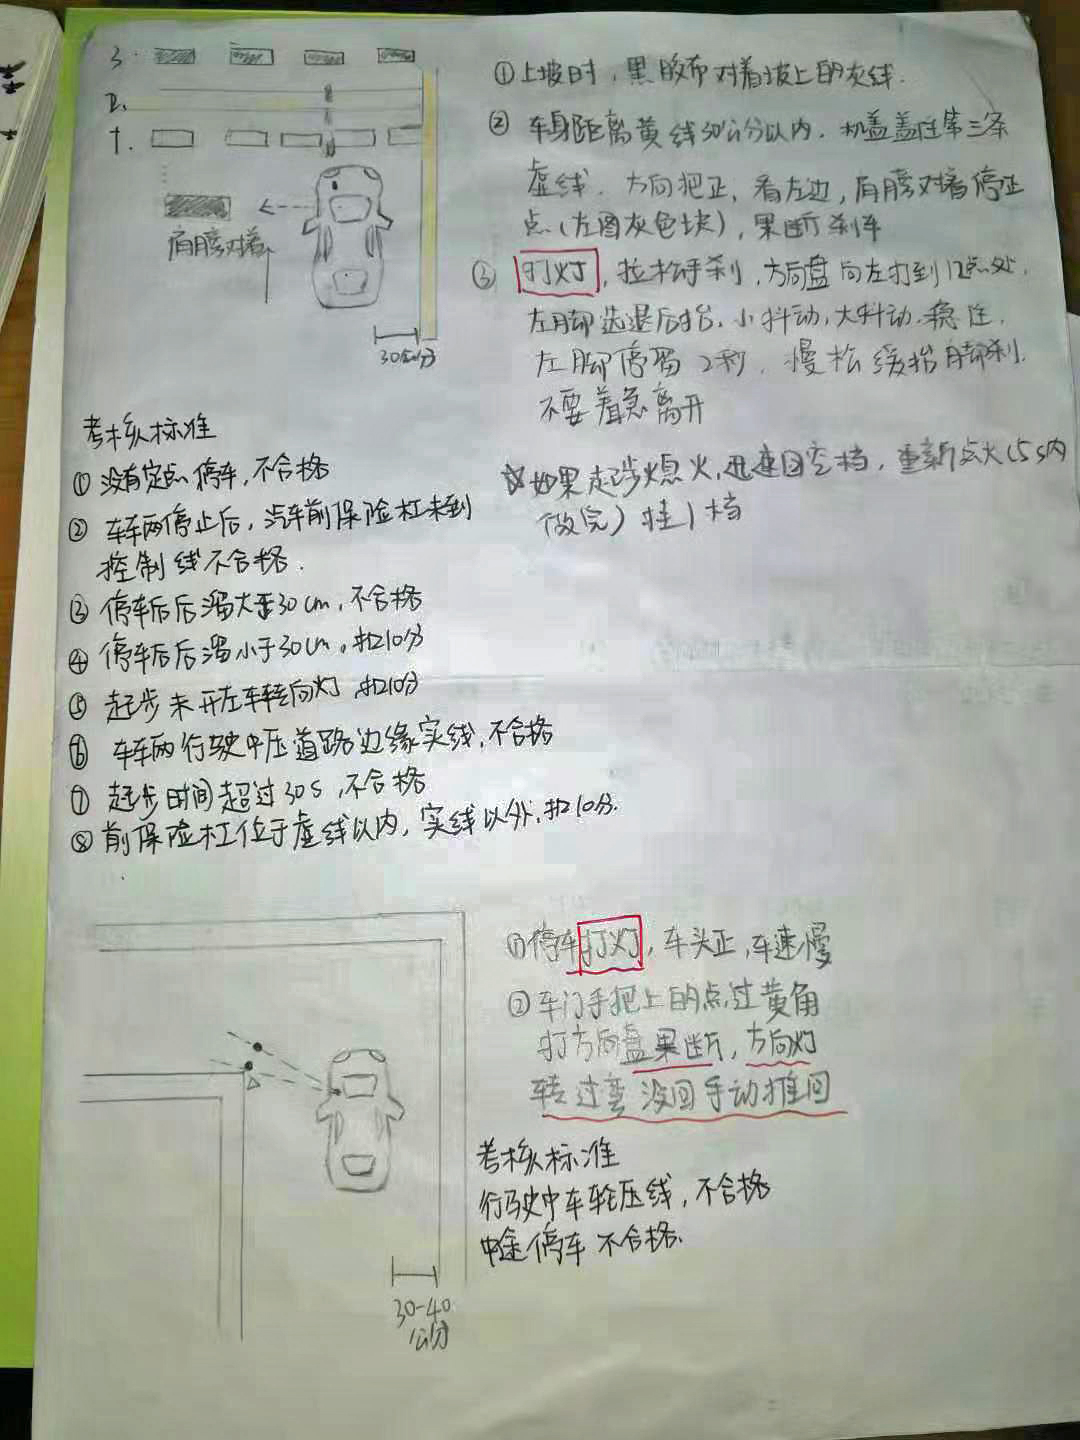 3.
2.
1.
肩膀对着
30公分
①上坡时，黑胶布对着坡上的灰线.
② 车身距离黄线30公分以内.机盖盖住第三条
虚线.方向把正，看左边，肩膀对着停止
点(左图灰色块)，果断刹车
③ 打灯，拉松手刹，方向盘向左打到12点处，
左脚迅速后抬.小抖动，大抖动.稳住.
左脚停留2秒.慢松缓抬脚刹.
不要着急离开
☆如果起步熄火，迅速回空档，重新点火(5s内
做完)挂1档
考核标准
①没有定点停车，不合格
②车车两停止后，汽车前保险杠未到
控制线不合格.
③停车后后溜大于30cm，不合格
④停车后后溜小于30cm，扣10分
⑤起步未开左车转向灯，扣10分
⑥车车两行驶中压道路边缘实线，不合格
⑦起步时间超过30s，不合格
⑧前保险杠位于虚线以内，实线以外，扣10分.
30-40
公分
①停车打灯，车头正，车速慢
②车门手把上的点过黄角
打方向盘果断，方向灯
转过弯没回手动推回
考核标准
行驶中车轮压线，不合格
中途停车不合格.